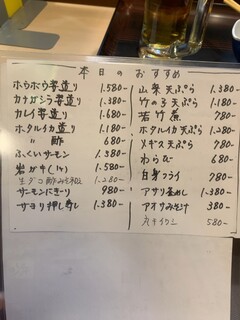 本日のおすすめ
ホウボウ姿造り 1.580-
カナガシラ姿造り 1.380-
カレイ姿造り 1.680-
ホタルイカ造り 1.180-
〃 酢 680-
ふくいサーモン 1.380-
岩ガキ(1ケ) 1.580-
生ダコ酢みそ和え 1.280-
サーモンにぎり 980-
サヨリ押し寿し 1.380-
山菜天ぷら 1.580-
竹の子天ぷら 1.180-
若竹煮 780-
ホタルイカ天ぷら 1.280-
メギス天ぷら 780-
わらび 680-
白身フライ 780-
アサリ釜めし 1.380-
アオサみそ汁 380-
丸干イワシ 580-